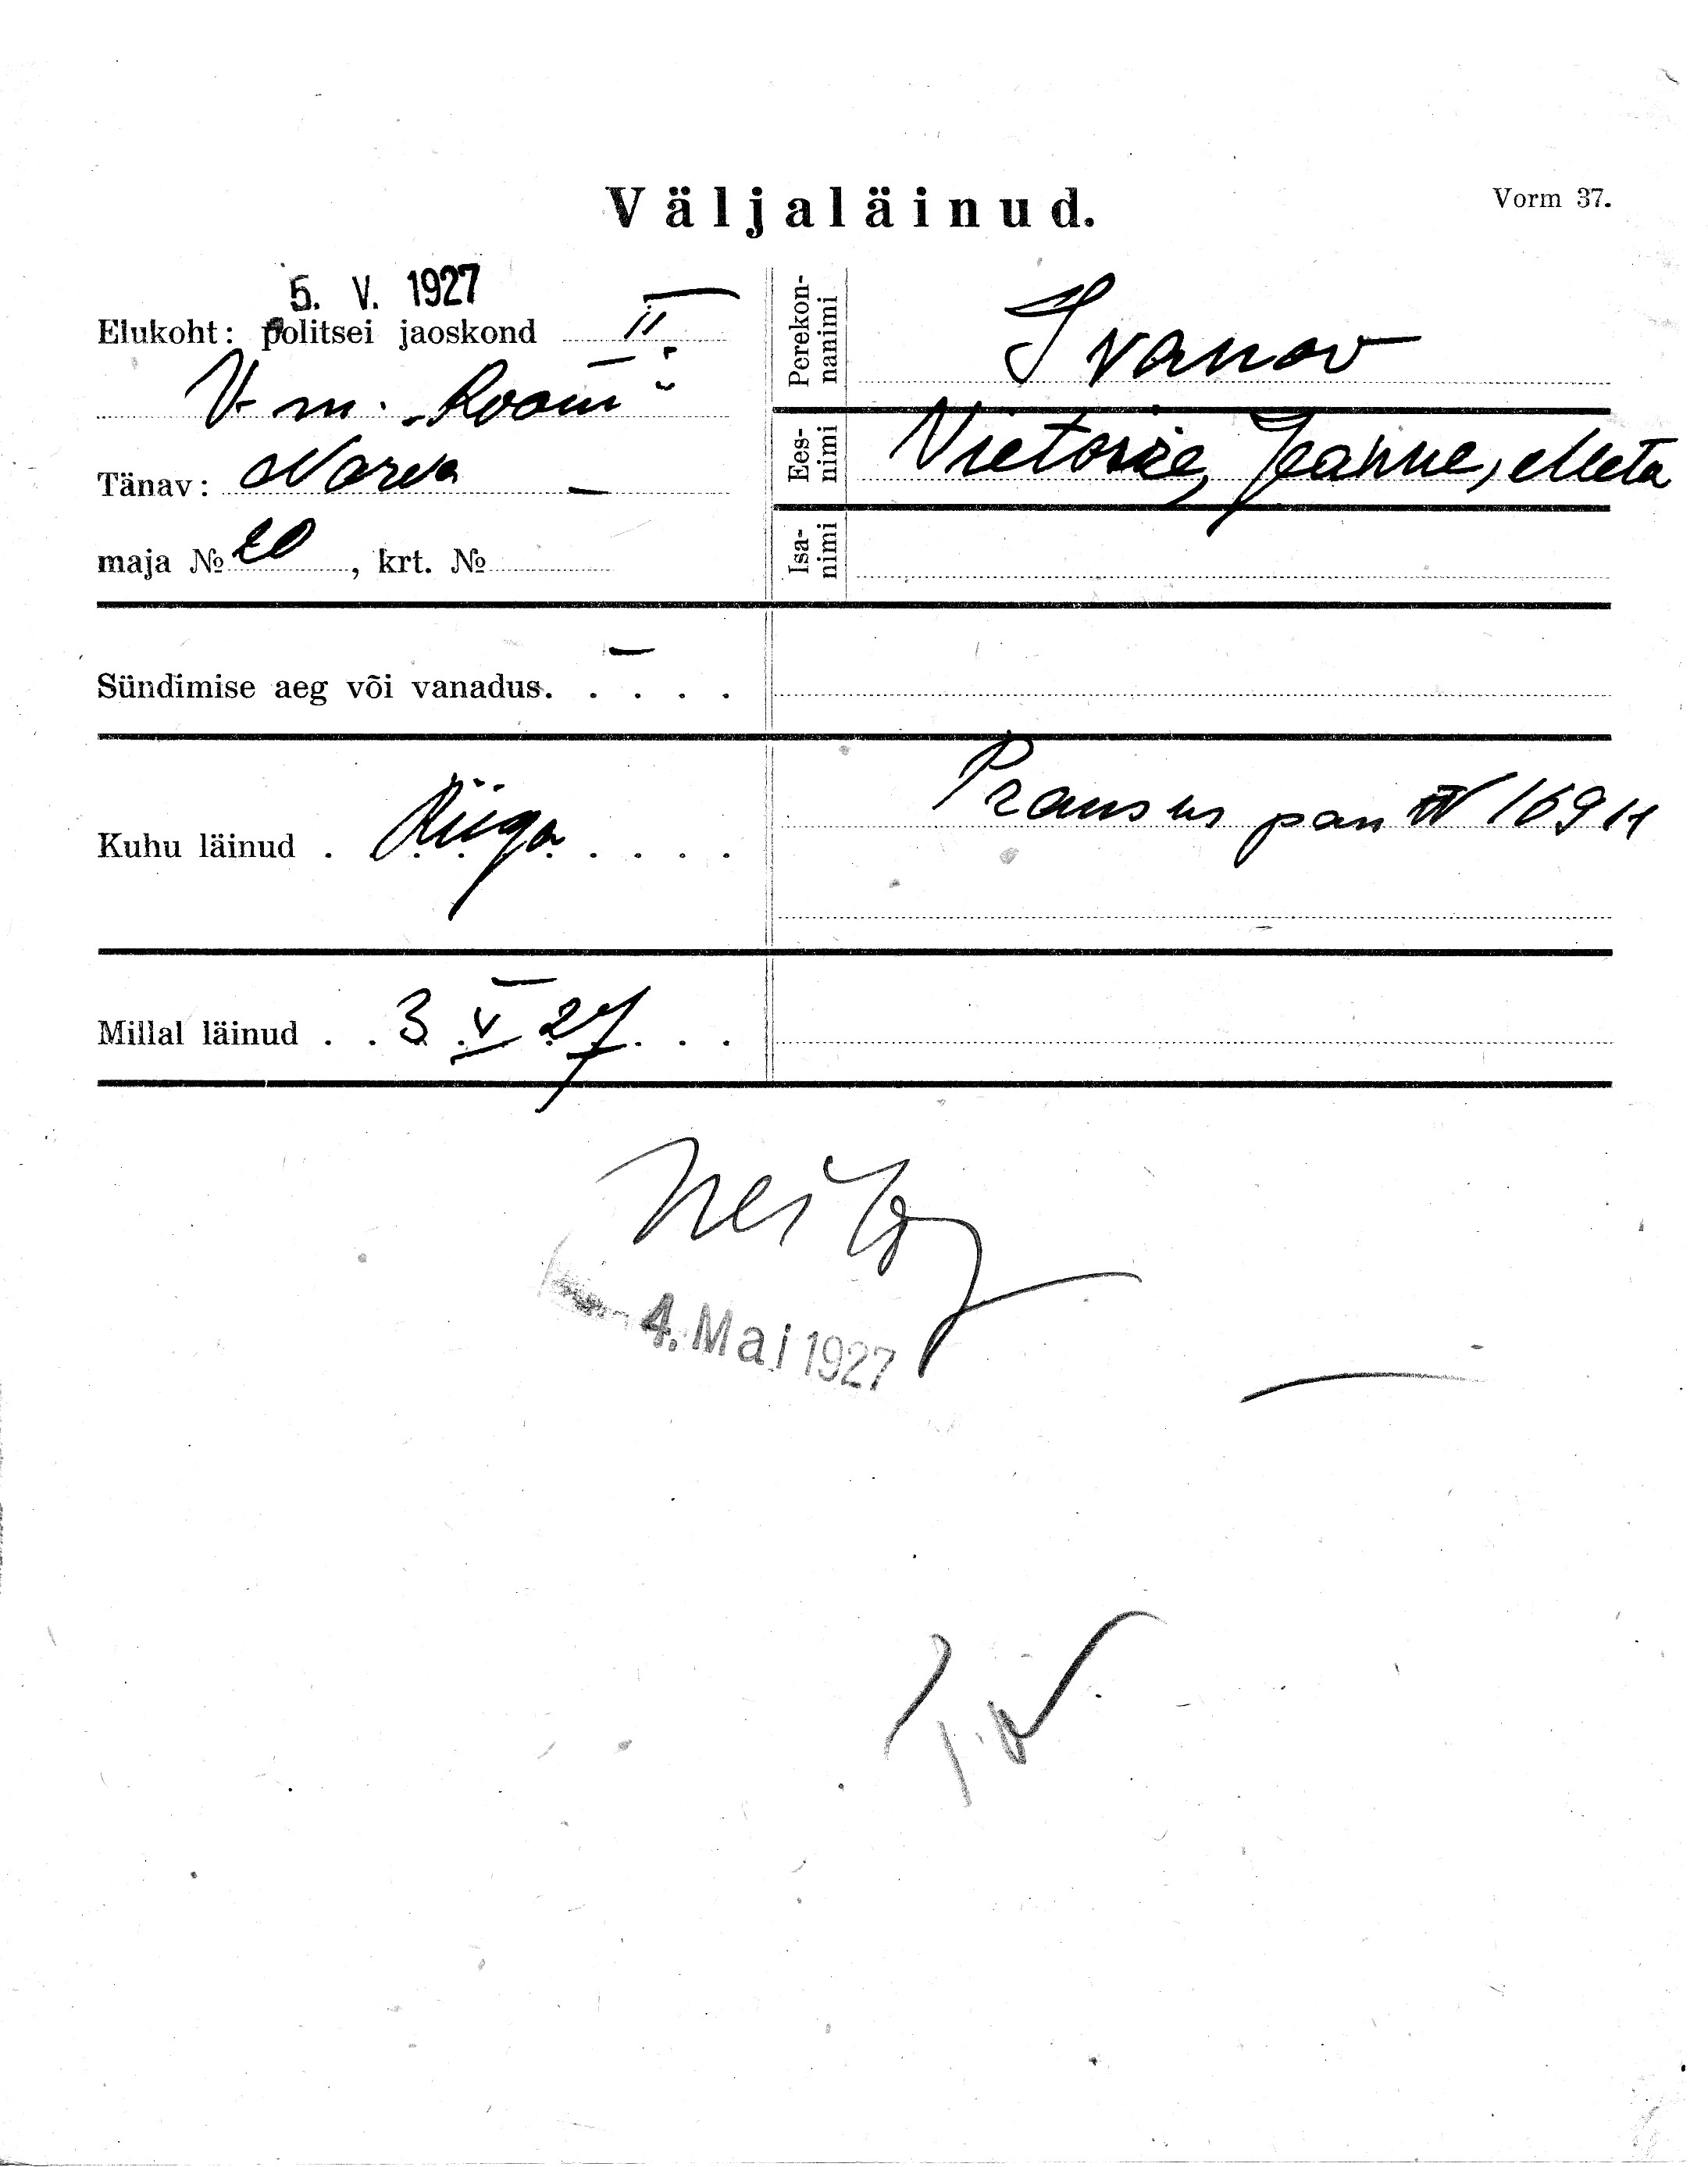 Väljaläinud.
Vorm 37.
5. V. 1927
Elukoht: politsei jaoskond II
V. m. „Room“
Tänav: Narva
maja № 20, krt. №
Perekon-
nanimi
Ivanov
Ees-
nimi
Victorie, Jeanne, Meta
Isa-
nimi
Sündimise aeg või vanadus. –
Kuhu läinud Riiga
Prantsus pass № 16911
Millal läinud 3 V 27
4. Mai 1927